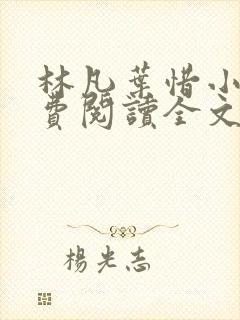 林凡葉惜小
費閱讀全文
楊光志